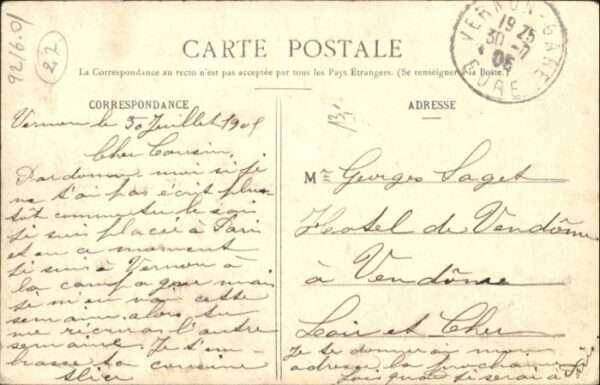 92/6.01
27
CARTE POSTALE
La Correspondance au recto n'est pas acceptée par tous les Pays Etrangers. (Se renseigner à la Poste.)
VERNON-GARE
19 25
30 -7
05
EURE
CORRESPONDANCE
Vernon le 30 Juillet 1905
Cher Cousin,
Pardonne moi si je
ne t'ai pas écrit plus
tôt comme tu le sais
si suis placée à Paris
et en ce moment
si suis à Vernon à
la campagne mais
si m'en vais cette
semaine alors tu
me l'autre
semaine. Je t'em-
brasse ta cousine
Alice
ADRESSE
Mr Georges Saget
Hotel de Vendôme
à Vendôme
Loir et Cher
Je te donnerai mon
adresse la prochaine
fois que je serai à Paris